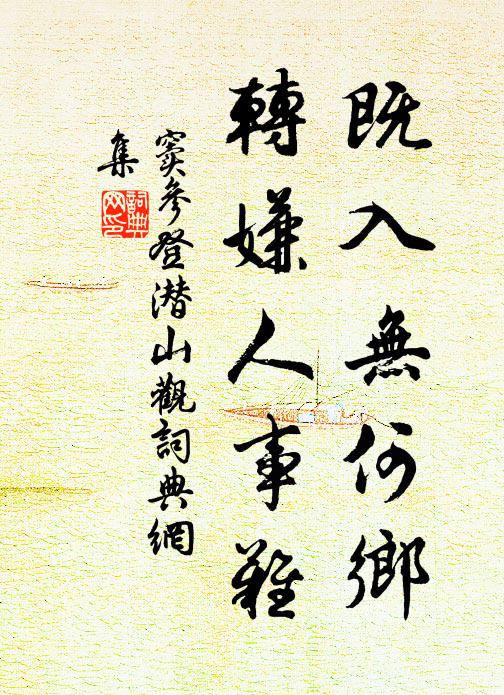 既入無何鄉
轉嫌人事難
竇參登潜山觀詞典網
集
詞典
网印